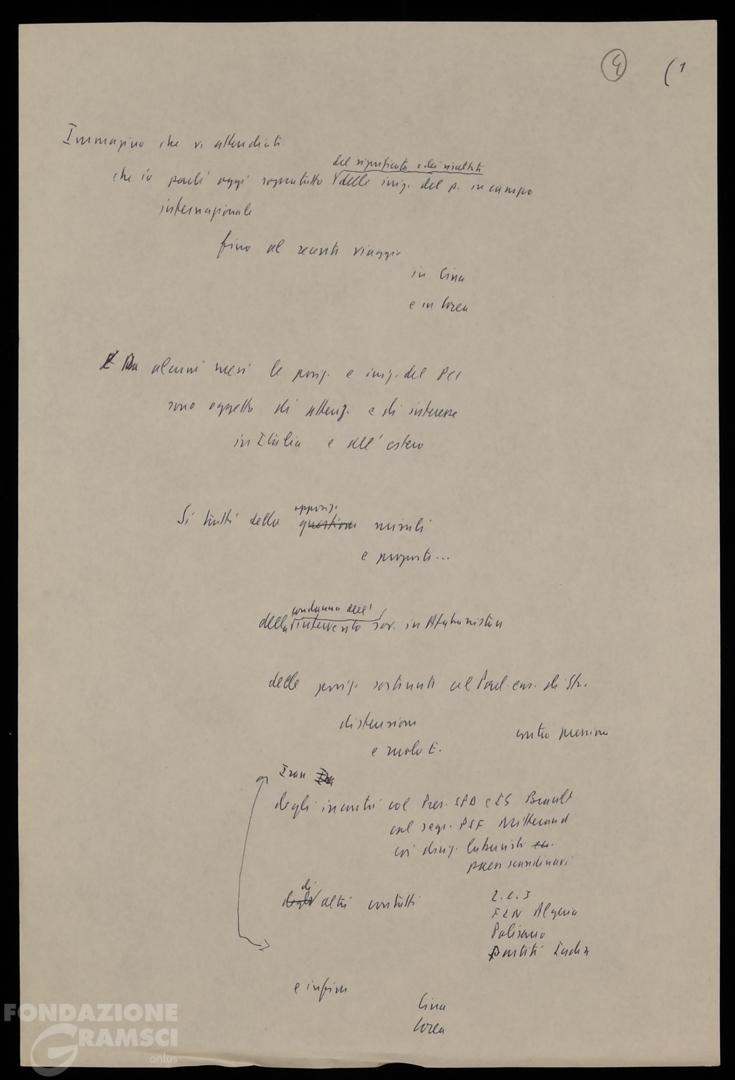 4 (1
Immagino che vi attendiate
del significato e dei risultati
che io parli oggi soprattutto delle iniz. del p. in campo
internazionale
fino al recente viaggio
in Cina
e in Corea
Da alcuni mesi le posiz. e iniz. del PCI
sono oggetto di attenz. e di interesse
in Italia e all'estero
Si tratti della opposiz. missili
e proposte...
condanna dell'
della intervento sov. in Afghanistan
delle posiz. sostenute al Parl. eur. di Str.
distensione
e ruolo E.
Iran
degli incontri col Pres. SPD e IS Brandt
col segr. PSF Mitterand
coi dirig. laburisti
paesi scandinavi
di altri contatti
L.C.J
FLN Algeria
Polisario
partiti India
e infine
Cina
Corea
FONDAZIONE
GRAMSCI
onlus